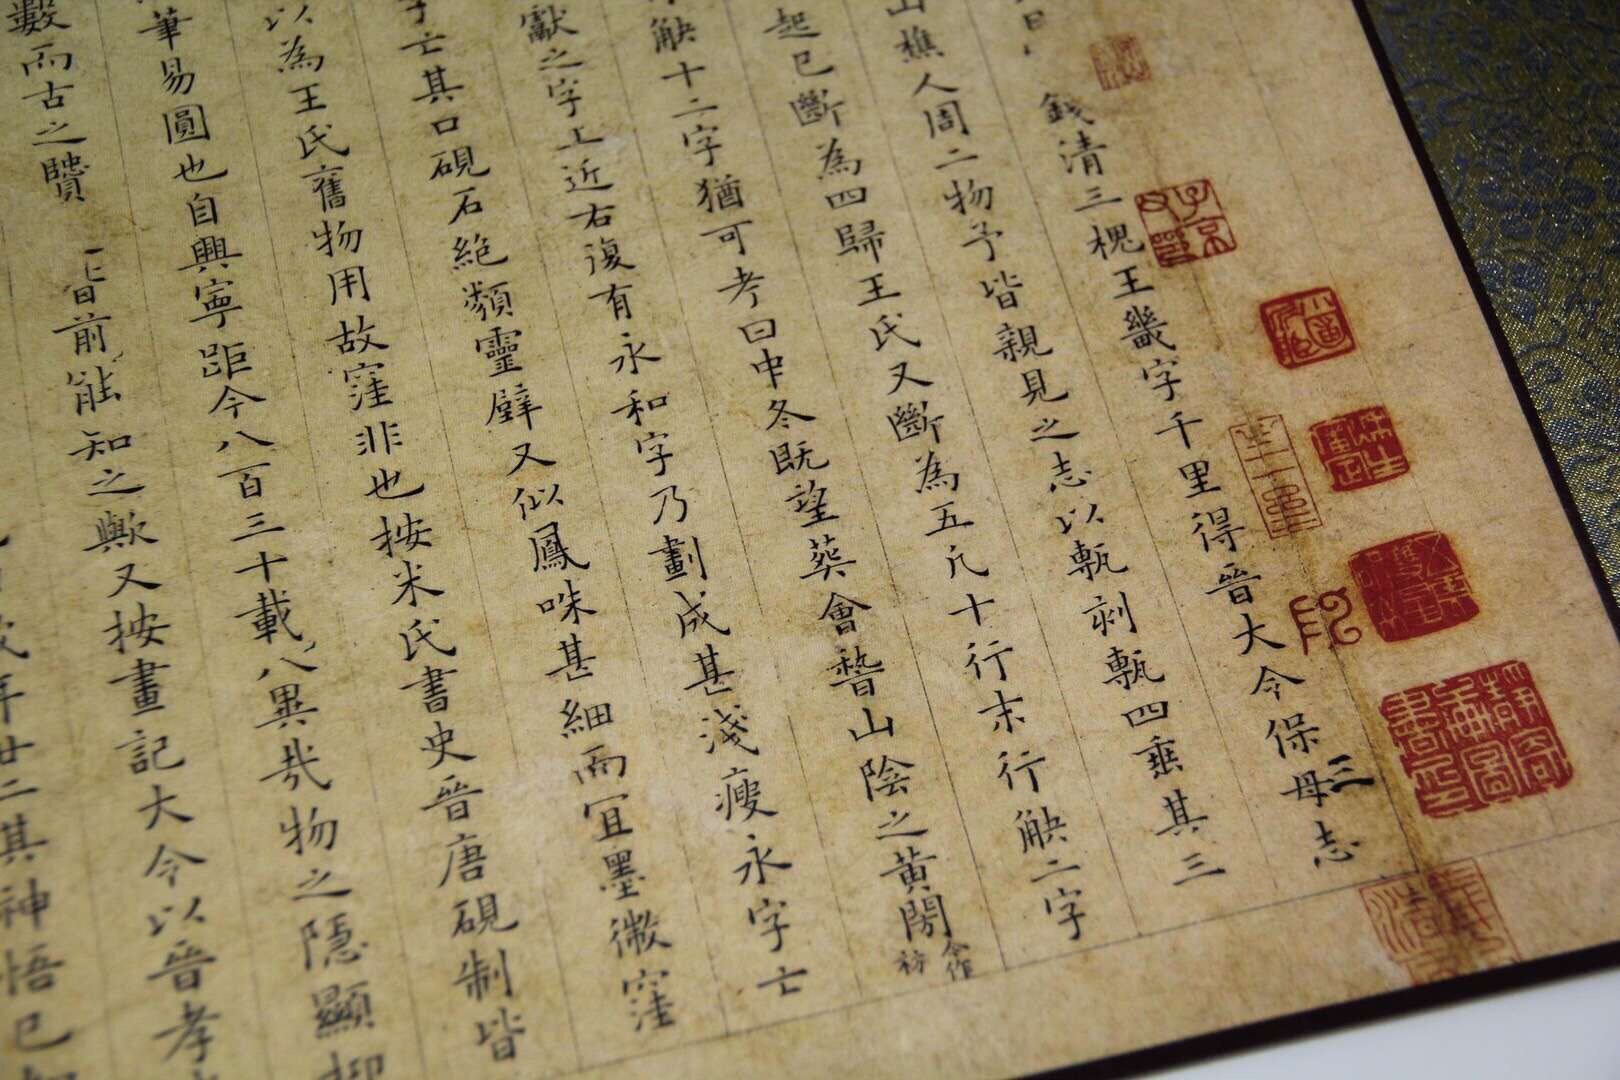 錢清三槐王畿字千里得晉大令保母志
三
山樵人周二物予皆親見之志以甎刻甎四垂其三
起已斷為四歸王氏又斷為五凡十行末行觖二字
觖十二字猶可考曰中冬既望葬會稽山陰之黃閍今作祊
獻之字上近右復有永和字乃劃成甚淺瘦永字亡
字亡其口硯石絕類靈璧又似鳳咮甚細而宜墨微窪
以為王氏舊物用故窪非也按米氏書史晉唐硯制皆
筆易圓也自興寧距今八百三十載八異哉物之隱顯抑
數而古之 皆前能知之歟又按畫記大令以晉孝
年廿二其神悟已如